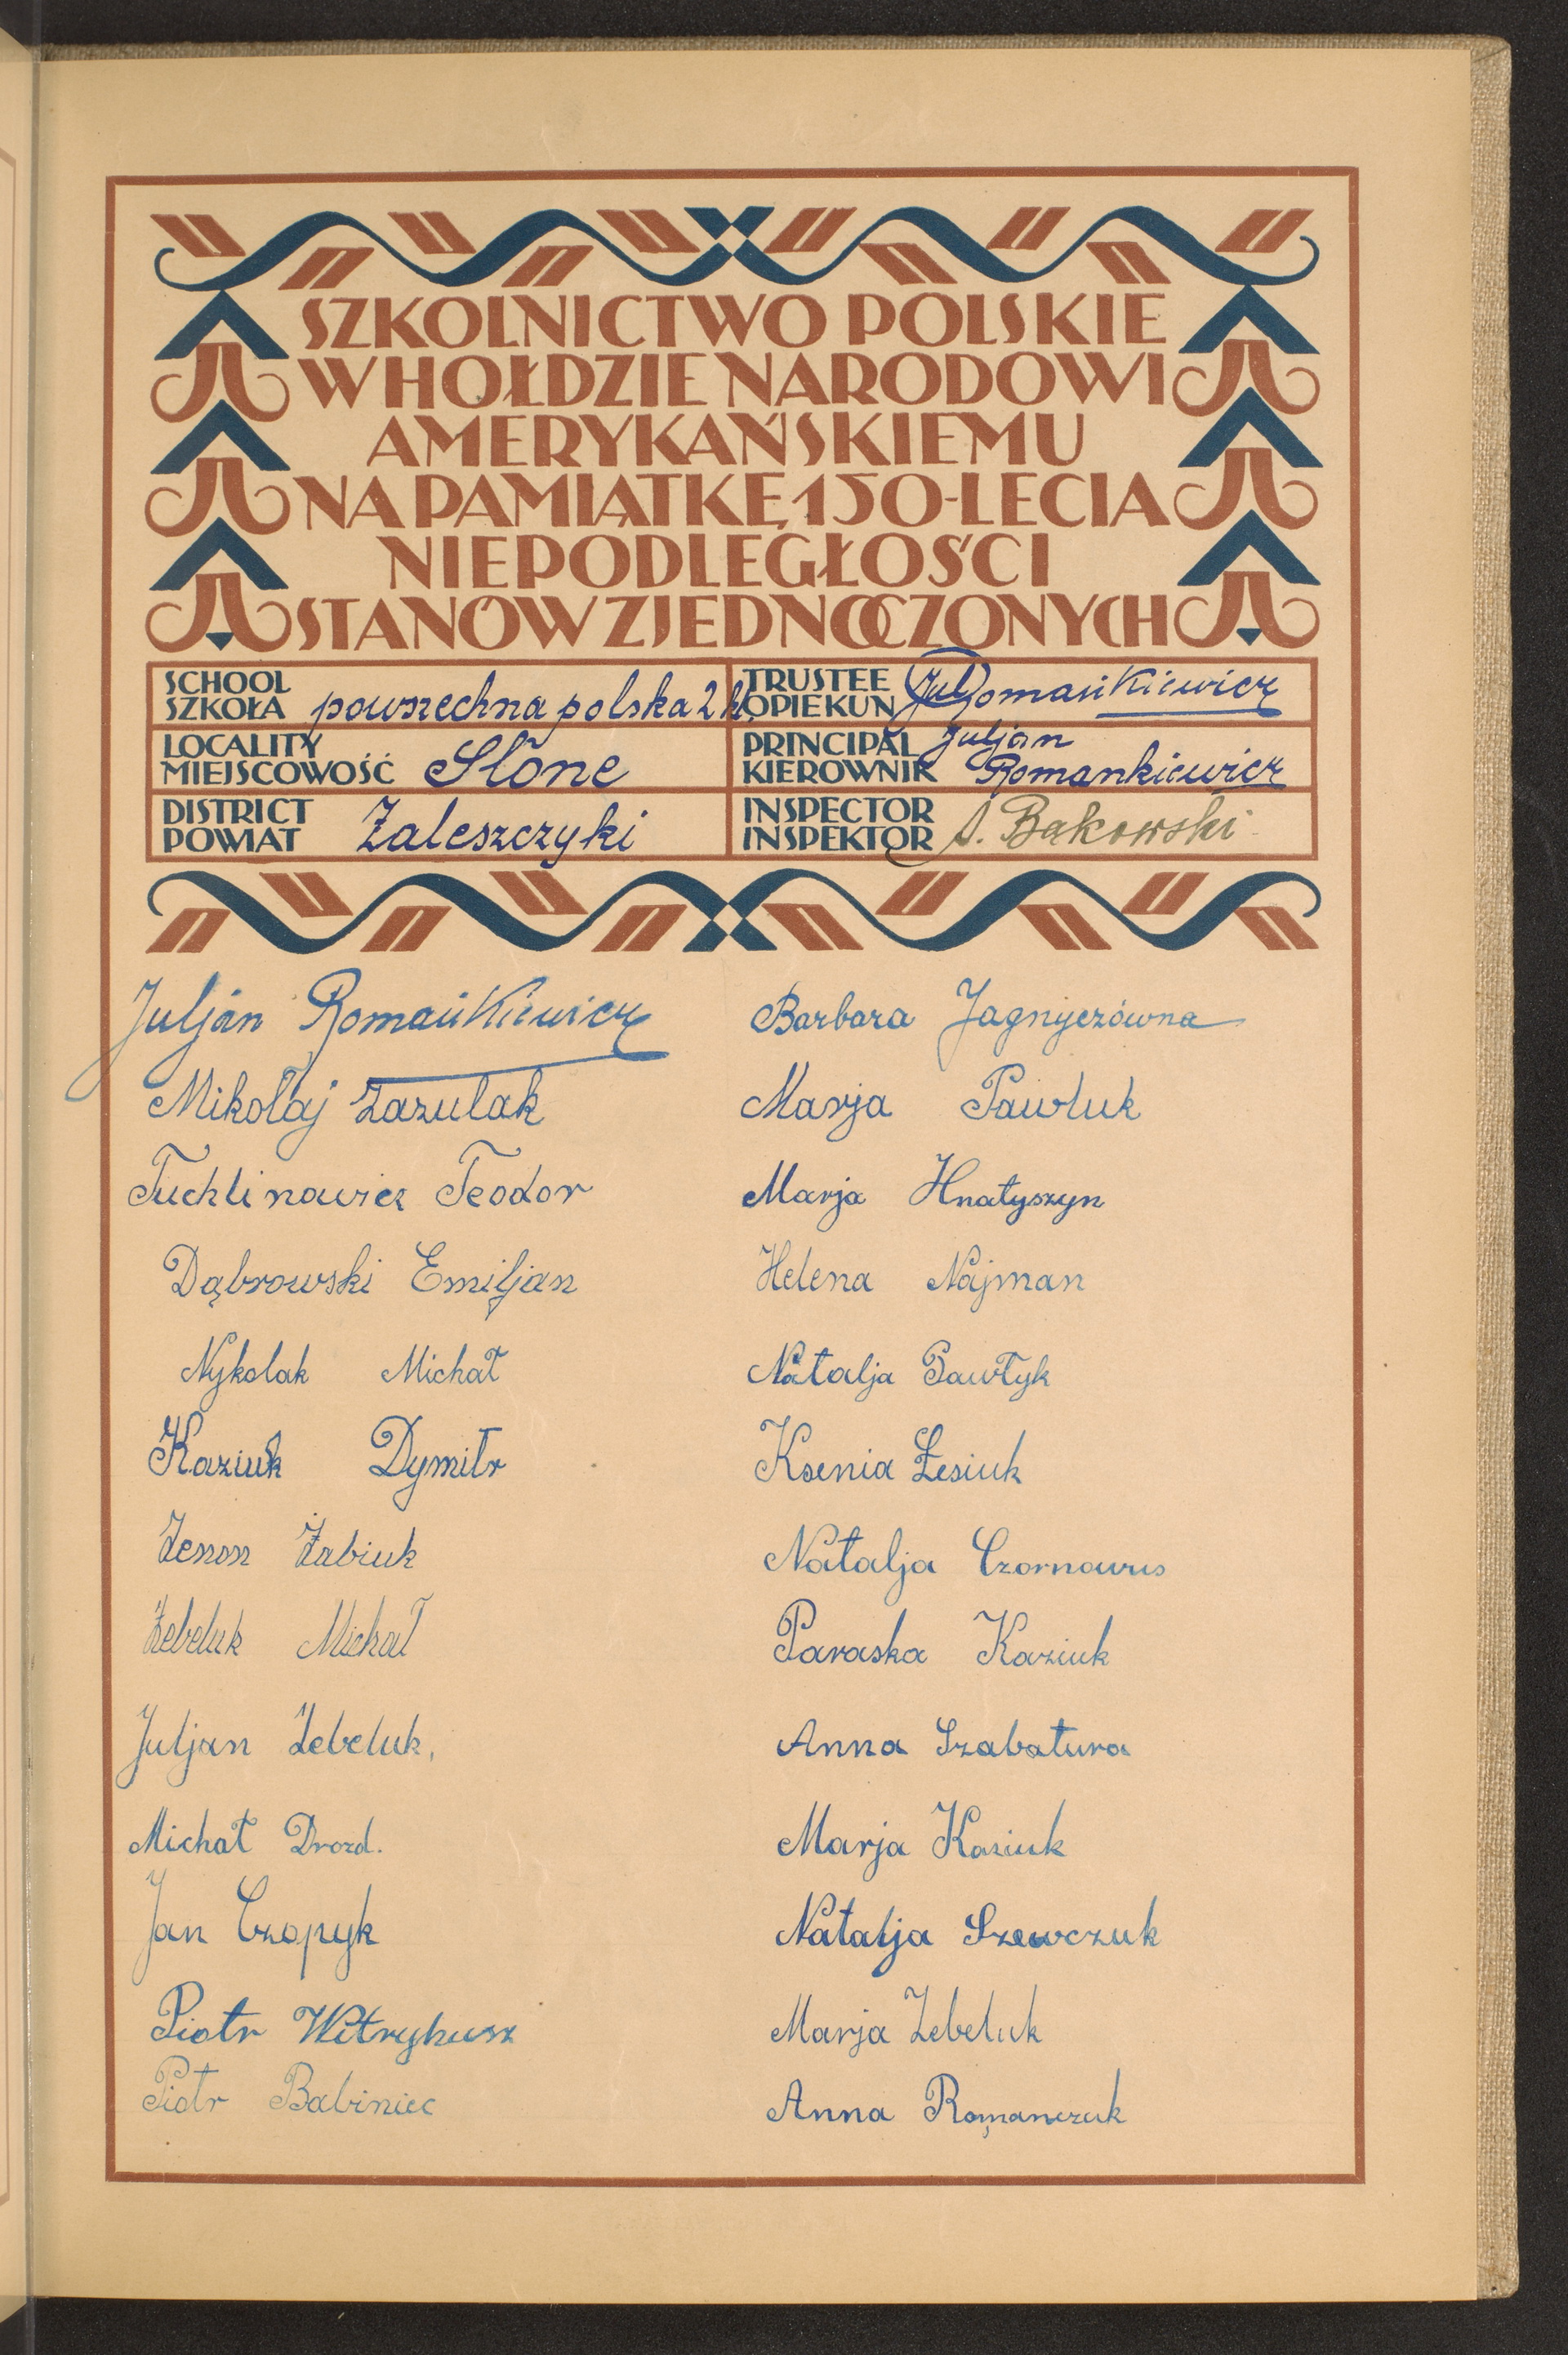 SZKOLNICTWO POLSKIE
W HOŁDZIE NARODOWI
AMERYKAŃSKIEMU
NA PAMIĄTKĘ 150-LECIA
NIEPODLEGŁOŚCI
STANÓW ZJEDNOCZONYCH
SCHOOL
SZKOŁA powszechna polska 2 kl.
TRUSTEE
OPIEKUN Jul Romańkiewicz
LOCALITY
MIEJSCOWOŚĆ Słone
PRINCIPAL
KIEROWNIK Juljan Romankiewicz
DISTRICT
POWIAT Zaleszczyki
INSPECTOR
INSPEKTOR A. Bąkowski
Juljan Romańkiewicz
Mikołaj Zazulak
Tuchlinowicz Teodor
Dąbrowski Emiljan
Nykolak Michał
Kaziuk Dymitr
Zenon Żabiuk
Żebeluk Michał
Juljan Żebeluk,
Michał Drozd.
Jan Czopyk
Piotr Witrykusz
Piotr Babiniec
Barbara Jagnyczówna
Marja Pawluk
Marja Hnatyszyn
Helena Najman
Natalja Pawłyk
Ksenia Łesiuk
Natalja Czornowus
Paraska Kaziuk
Anna Szabatura
Marja Kaziuk
Natalja Szewczuk
Marja Żebeluk
Anna Romanczuk